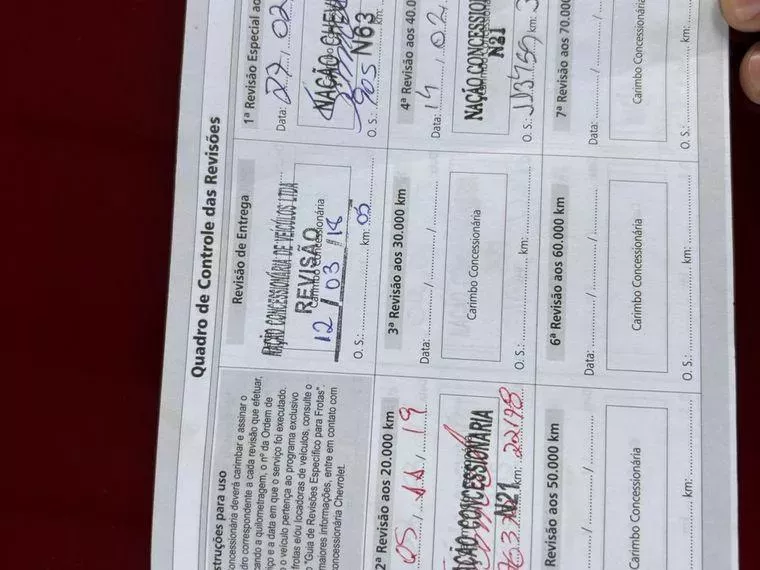 Quadro de Controle das Revisões
struções para uso
oncessionária deverá carimbar e assinar o
dro correspondente a cada revisão que efetuar,
ando a quilometragem, o nº da Ordem de
iço e a data em que o serviço foi executado.
o veículo pertença ao programa exclusivo
frotas e/ou locadoras de veículos, consulte o
"Guia de Revisões Específico para Frotas".
maiores informações, entre em contato com
oncessionária Chevrolet.
Revisão de Entrega
NAÇÃO CONCESSIONÁRIA DE VEÍCULOS LTDA
REVISÃO
Carimbo Concessionária
12 / 03 / 18
O. S.: km: 05
1ª Revisão Especial ao
Data: 02
NAÇÃO CHEV
N63
O. S.: km:
2ª Revisão aos 20.000 km
05 / 11 / 19
AÇÃO CONCESSIONÁRIA
N21
km: 22198
3ª Revisão aos 30.000 km
Data: / /
Carimbo Concessionária
O. S.: km:
4ª Revisão aos 40.0
Data: 14 / 02
NAÇÃO CONCESSION
Carimbo Concessionária
N21
O. S.: km:
Revisão aos 50.000 km
/ /
Carimbo Concessionária
km:
6ª Revisão aos 60.000 km
Data: / /
Carimbo Concessionária
O. S.: km:
7ª Revisão aos 70.000
Data: /
Carimbo Concessionária
O. S.: km: